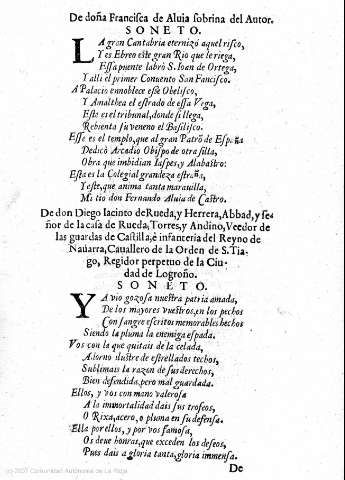 De doña Francisca de Aluia sobrina del Autor.
SONETO.
LA gran Cantabria eternizò aquel risco,
Y es Ebreo este gran Rio que le riega,
Essa puente labrò S. Ioan de Ortega,
Y alli el primer Conuento San Fancisco.
A Palacio ennoblece esse Obelisco,
Y Amalthea el estrado de essa Vega,
Este es el tribunal, donde si llega,
Rebienta su veneno el Basilisco.
Esse es el templo, que al gran Patrõ de España
Dedicò Arcadio Obispo de otra silla,
Obra que imbidian Iaspes, y Alabastro:
Esta es la Colegial grandeza estraña,
Y este, que anima tanta marauilla,
Mi tio don Fernando Aluia de Castro.
De don Diego Iacinto de Rueda, y Herrera, Abbad, y se-
ñor de la casa de Rueda, Torres, y Andino, Veedor de
las guardas de Castilla, è infanteria del Reyno de
Nauarra, Cauallero de la Orden de S. Tia-
go, Regidor perpetuo de la Ciu-
dad de Logroño.
SONETO.
YA vio gozosa nuestra patria amada,
De los mayores vuestros, en los pechos
Con sangre escritos memorables hechos
Siendo la pluma la enemiga espada.
Vos con la que quitais de la celada,
Adorno ilustre de estrellados techos,
Sublimais la razon de sus derechos,
Bien defendida, pero mal guardada.
Ellos, y vos con mano valerosa
A la immortalidad dais sus trofeos,
O Rixa, acero, o pluma en su defensa.
Ella por ellos, y por vos famosa,
Os deue honras, que exceden los deseos,
Pues dais a gloria tanta, gloria immensa.
De
(c) 2007 Comunidad Autónoma de La Rioja